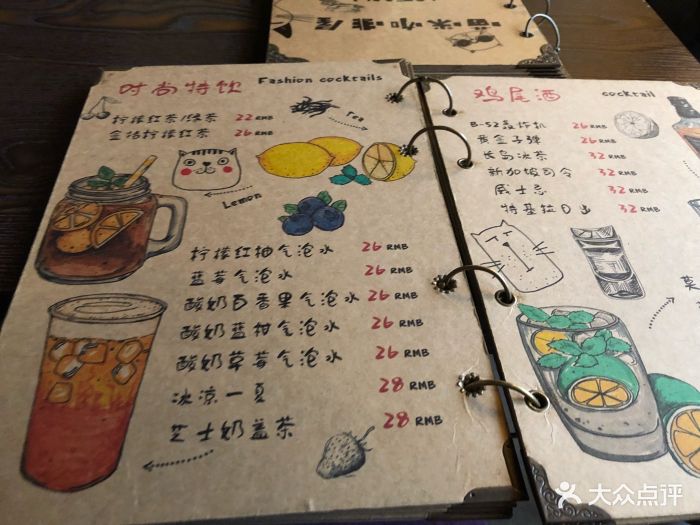 喵咪咖啡屋
时尚特饮 Fashion cocktails
柠檬红茶/绿茶 22 RMB
金桔柠檬红茶 26 RMB
Tea
Lemon
柠檬红柚气泡水 26 RMB
蓝莓气泡水 26 RMB
酸奶百香果气泡水 26 RMB
酸奶蓝柑气泡水 26 RMB
酸奶草莓气泡水 26 RMB
冰凉一夏 28 RMB
芝士奶盖茶 28 RMB
鸡尾酒 cocktail
B-52轰炸机 26 RMB
黄金子弹 26 RMB
长岛冰茶 32 RMB
新加坡司令 32 RMB
威士忌 32 RMB
特基拉日出 32 RMB
莫
大众点评